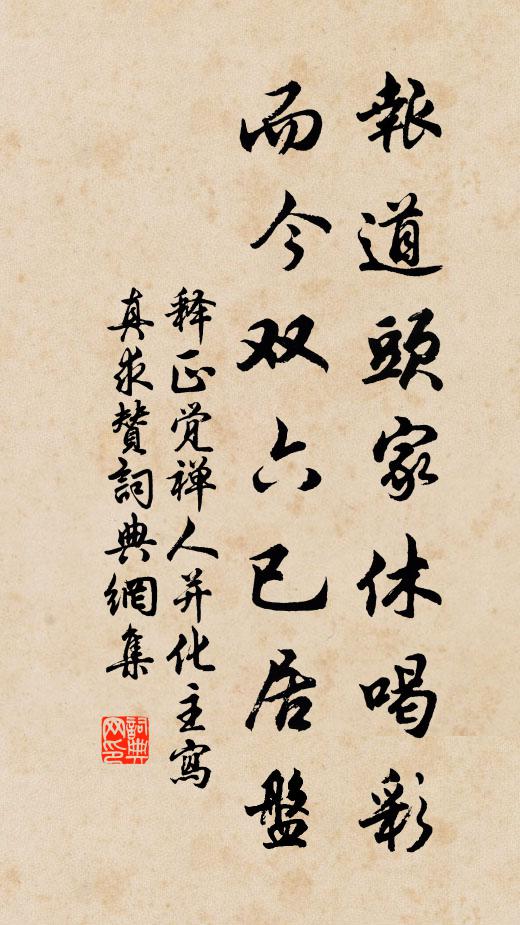 報道頭家休喝彩
而今双六已居盤
释正觉禅人并化主寫
真求贊詞典網集
詞典
网印